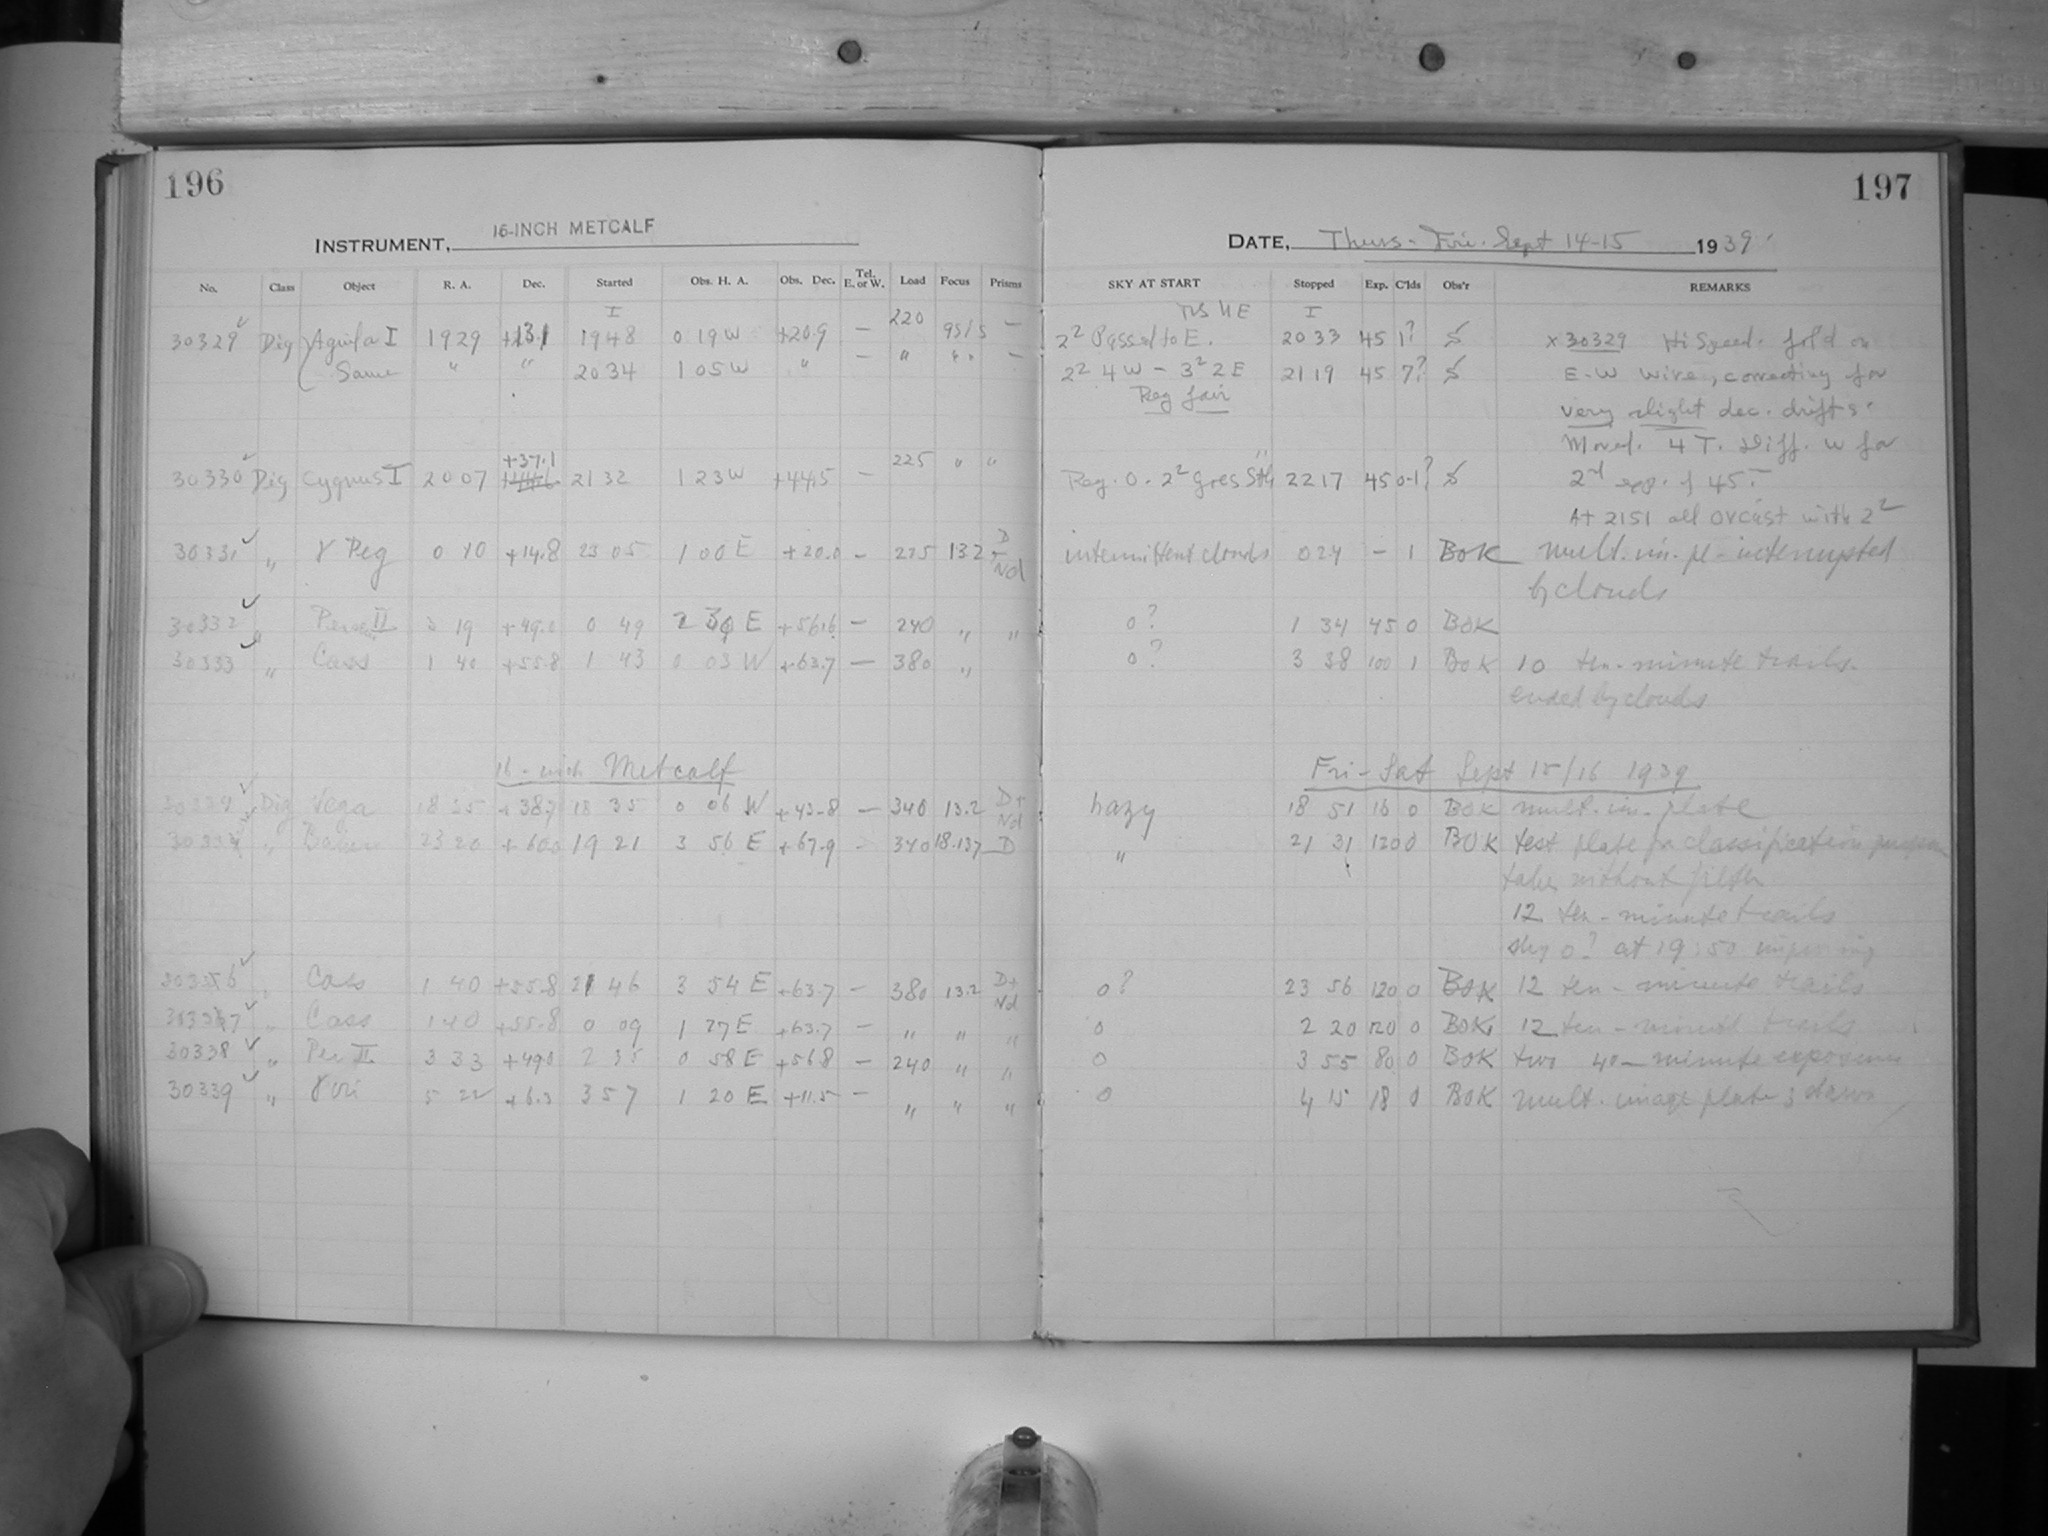 196
197
INSTRUMENT, 16-INCH METCALF
DATE, Thurs - Fri. Sept 14-15 1939
No. Class Object R. A. Dec. Started Obs. H. A. Obs. Dec. Tel. E. or W. Load Focus Prisms SKY AT START Stopped Exp. C'lds Obs'r REMARKS
30329 Aquila I 1929 +13.1 1948 0 19 W +20.9 — 220 — 2² Passed to E. 2033 45 1? x 30329 Hi Speed.
Same " " 2034 1 05 W " — " " — 2² 4 W - 3² 2 E 2119 45 7? E-W wire, correcting for
Reg fair very slight dec. drifts.
Moved. 4 T. Diff. W for
30330 Cygnus I 2007 +37.1 2132 1 23 W +44.5 — 225 " " Reg. 0 - 2² 2217 45 0-1? 2nd exp. of 45
At 2151 all ovcast with 2²
30331 " γ Peg 0 10 +14.8 23 05 1 00 E +20.0 — 225 13.2 D + Nd intermittent clouds 0 24 — 1 BOK mult. im. pl - interrupted
by clouds
30332 " II 3 19 +49.0 0 49 2 30 E +56.6 — 240 " " 0? 1 34 45 0 BOK
30333 " Cass 1 40 +55.8 1 43 0 03 W +63.7 — 380 " 0? 3 38 100 1 BOK 10 ten-minute trails
ended by clouds
16-inch Metcalf Fri - Sat Sept 15/16 1939
30334 Vega 18 35 +38.7 18 35 0 06 W +43.8 — 340 13.2 D+ Nd hazy 18 51 16 0 BOK mult. im. plate
" 23 20 +60.0 19 21 3 56 E +67.9 - 340 D " 21 31 120 0 BOK test plate for classification purpose
taken without filter
12 ten-minute trails
sky 0? at 19:50 improving
30336 " Cass 1 40 +55.8 21 46 3 54 E +63.7 — 380 13.2 D+ Nd 0? 23 56 120 0 BOK 12 ten-minute trails
30337 " Cass 1 40 +55.8 0 09 1 27 E +63.7 — " " " 0 2 20 120 0 BOK 12 ten-minute trails
30338 " Per II 3 33 +49.0 2 35 0 58 E +56.8 — 240 " " 0 3 55 80 0 BOK two 40-minute exposures
30339 " γ Ori 5 22 +6.3 3 57 1 20 E +11.5 — " " " 0 4 15 18 0 BOK mult. image plate